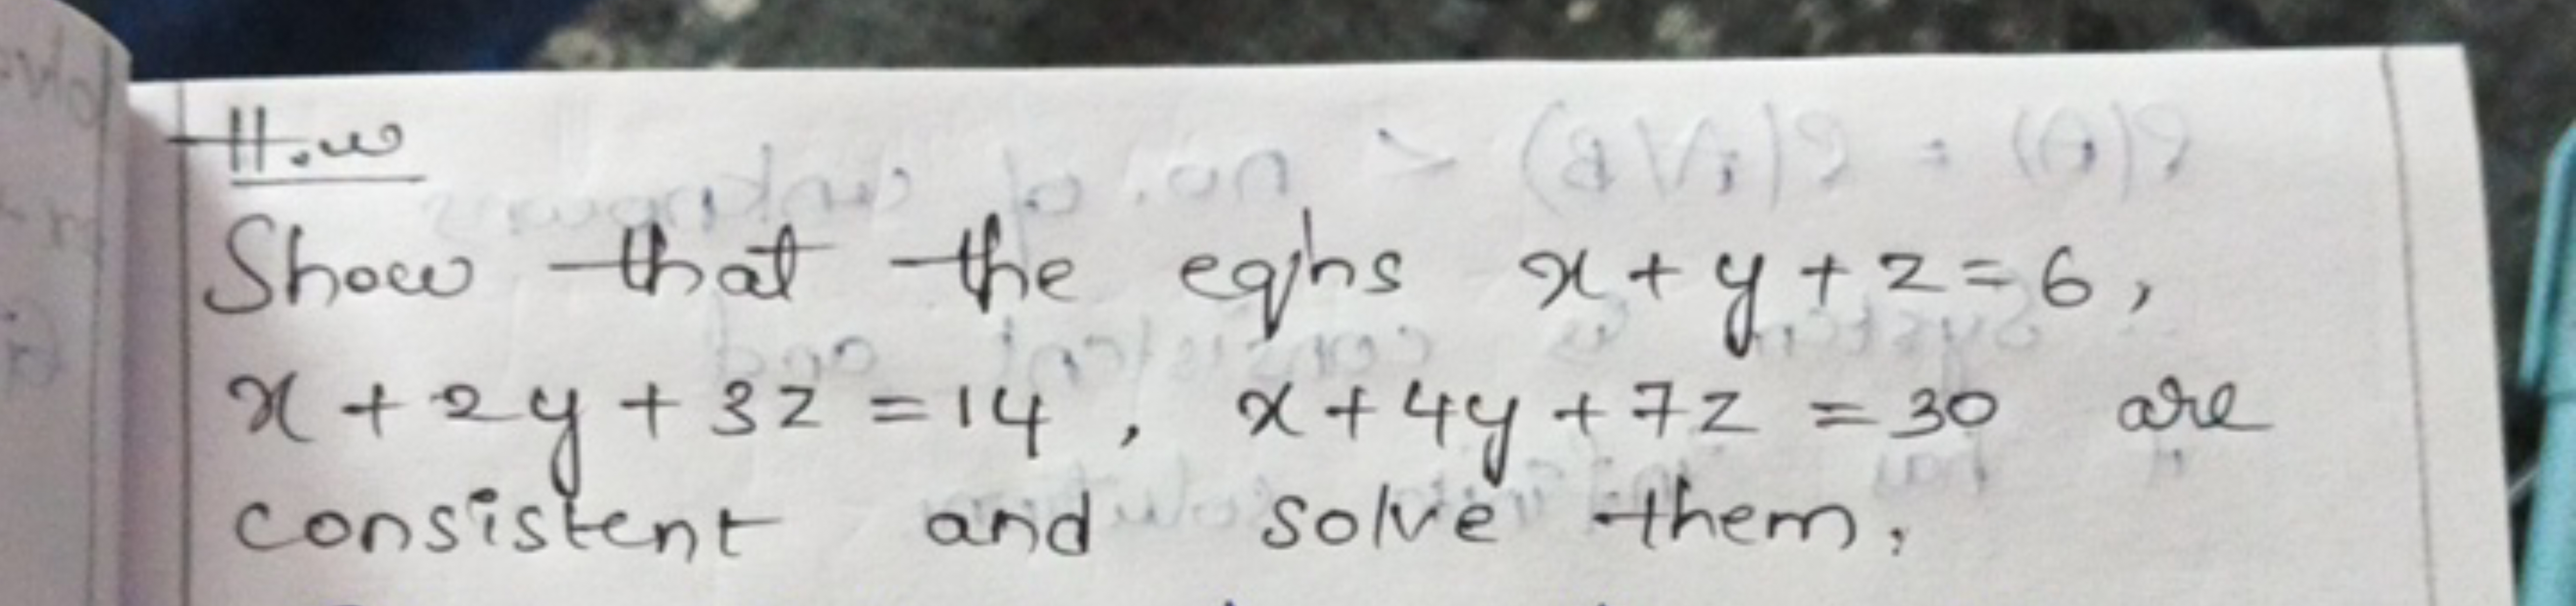 H.w
Show that the eqns x + y + z = 6,
x + 2y + 3z = 14, x + 4y + 7z = 30 are
consistent and solve them.